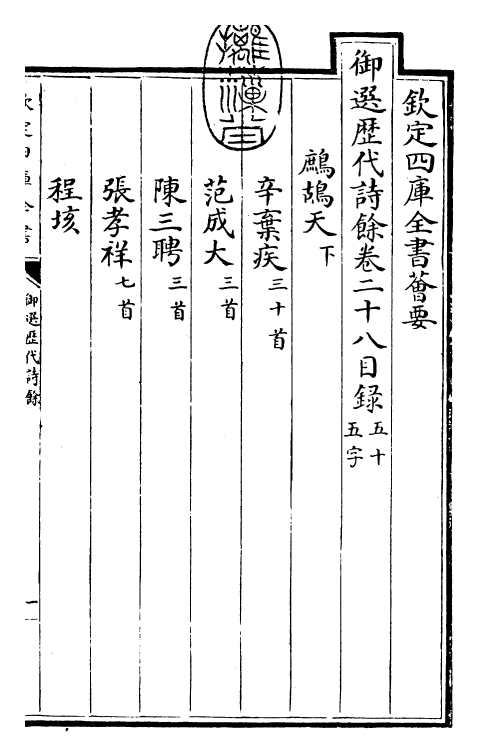 欽定四庫全書薈要
御選歷代詩餘卷二十八目録五十五字
鷓鴣天下
辛棄疾三十首
范成大三首
陳三聘三首
張孝祥七首
程垓
欽定四庫全書
御選歷代詩餘
一